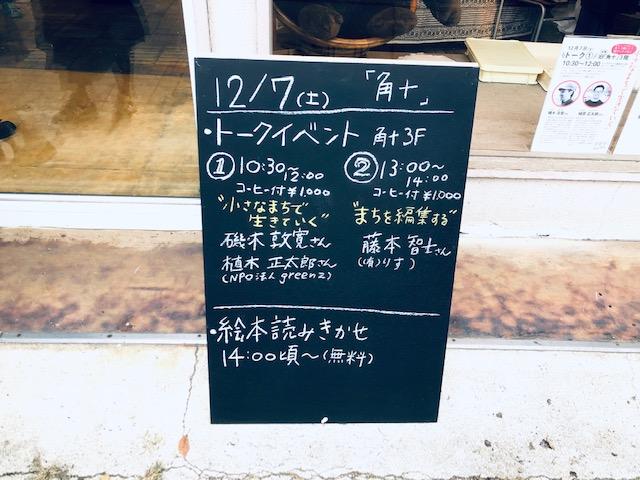 12/7(土) 「角十」
・トークイベント 角十3F
① 10:30~12:00
コーヒー付 ¥1,000
"小さなまちで
生きていく"
磯木 敦寛さん
植木 正太郎さん
(NPO法人 greenz)
② 13:00~
14:00
コーヒー付 ¥1,000
"まちを編集する"
藤本 智士さん
(有)りす)
・絵本読みきかせ
14:00頃~(無料)
12月7日
トーク①
10:30~12:00